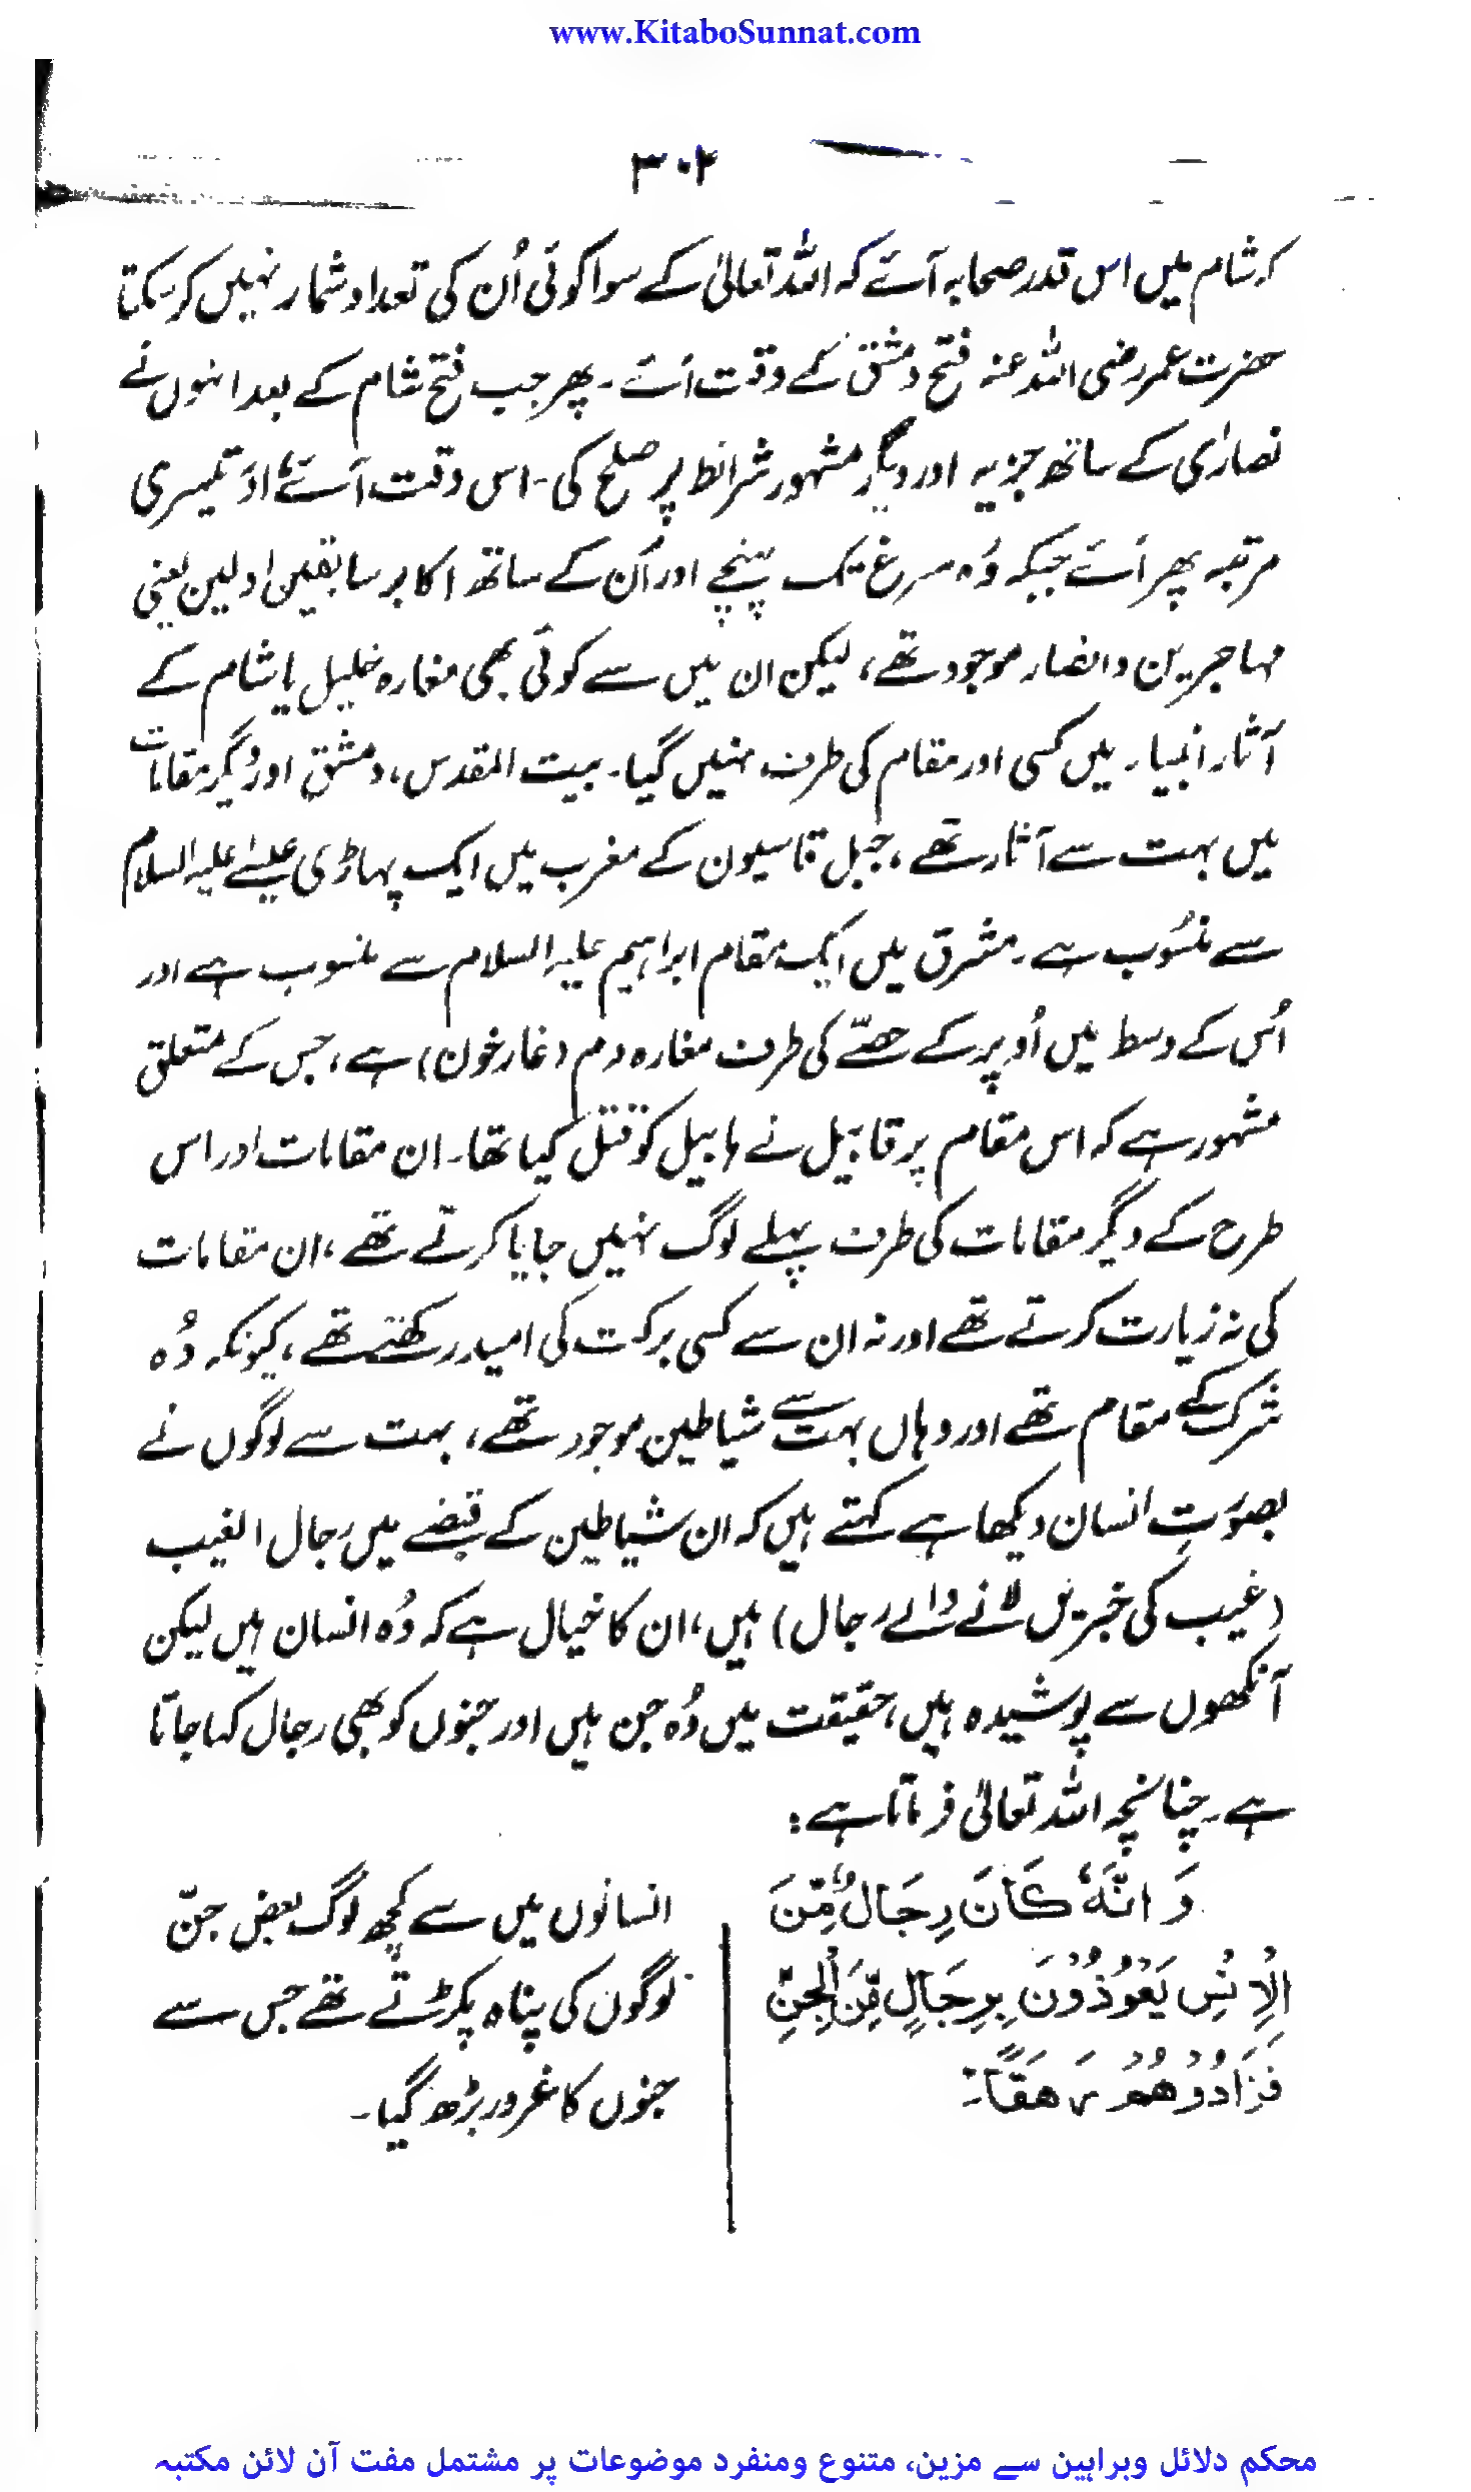 www.KitaboSunnat.com
۳۰۲
کہ شام میں اس قدر صحابہ آئے کہ اللہ تعالیٰ کے سوا کوئی اُن کی تعداد شمار نہیں کر سکتا
حضرت عمر رضی اللہ عنہ فتح دمشق کے وقت آئے۔ پھر جب فتح شام کے بعد انہوں نے
نصارٰی کے ساتھ جزیہ اور دیگر مشہور شرائط پر صلح کی۔ اس وقت آئے اور تیسری
مرتبہ پھر آئے جبکہ وُہ سرغ تک پہنچے اور اُن کے ساتھ اکابر سابقین اولین یعنی
مہاجرین و انصار موجود تھے، لیکن ان میں سے کوئی بھی مغارہ خلیل یا شام کے
آثار انبیاء میں کسی اور مقام کی طرف نہیں گیا۔ بیت المقدس، دمشق اور دیگر مقامات
میں بہت سے آثار تھے، جبل قاسیون کے مغرب میں ایک پہاڑی عیسٰے علیہ السلام
سے منسُوب ہے۔ مشرق میں ایک مقام ابراہیم علیہ السلام سے منسوب ہے اور
اُس کے وسط میں اُوپر کے حصّے کی طرف مغارہ دم (غار خون) ہے، جس کے متعلق
مشہور ہے کہ اس مقام پر قابیل نے ہابیل کو قتل کیا تھا۔ ان مقامات اور اس
طرح کے دیگر مقامات کی طرف پہلے لوگ نہیں جایا کرتے تھے، ان مقامات
کی نہ زیارت کرتے تھے اور نہ ان سے کسی برکت کی امید رکھتے تھے، کیونکہ وُہ
شرک کے مقام تھے اور وہاں بہت سے شیاطین موجود تھے، بہت سے لوگوں نے
بصورَتِ انسان دیکھا ہے کہتے ہیں کہ ان شیاطین کے قبضے میں رجال الغیب
(غیب کی خبریں لانے والے رجال) ہیں، ان کا خیال ہے کہ وُہ انسان ہیں لیکن
آنکھوں سے پوشیدہ ہیں، حقیقت میں وُہ جن ہیں اور جنوں کو بھی رجال کہا جاتا
ہے۔ چنانچہ اللہ تعالیٰ فرماتا ہے:
وَ انَّهٗ كَانَ رِجَالٌ مِّنَ
الْاِنْسِ يَعُوْذُوْنَ بِرِجَالٍ مِّنَ الْجِنِّ
فَزَادُوْهُمْ رَهَقًا۔
انسانوں میں سے کچھ لوگ بعض جنّ
لوگوں کی پناہ پکڑتے تھے جس سے
جنوں کا غرور بڑھ گیا۔
محکم دلائل وبراہین سے مزین، متنوع ومنفرد موضوعات پر مشتمل مفت آن لائن مکتبہ